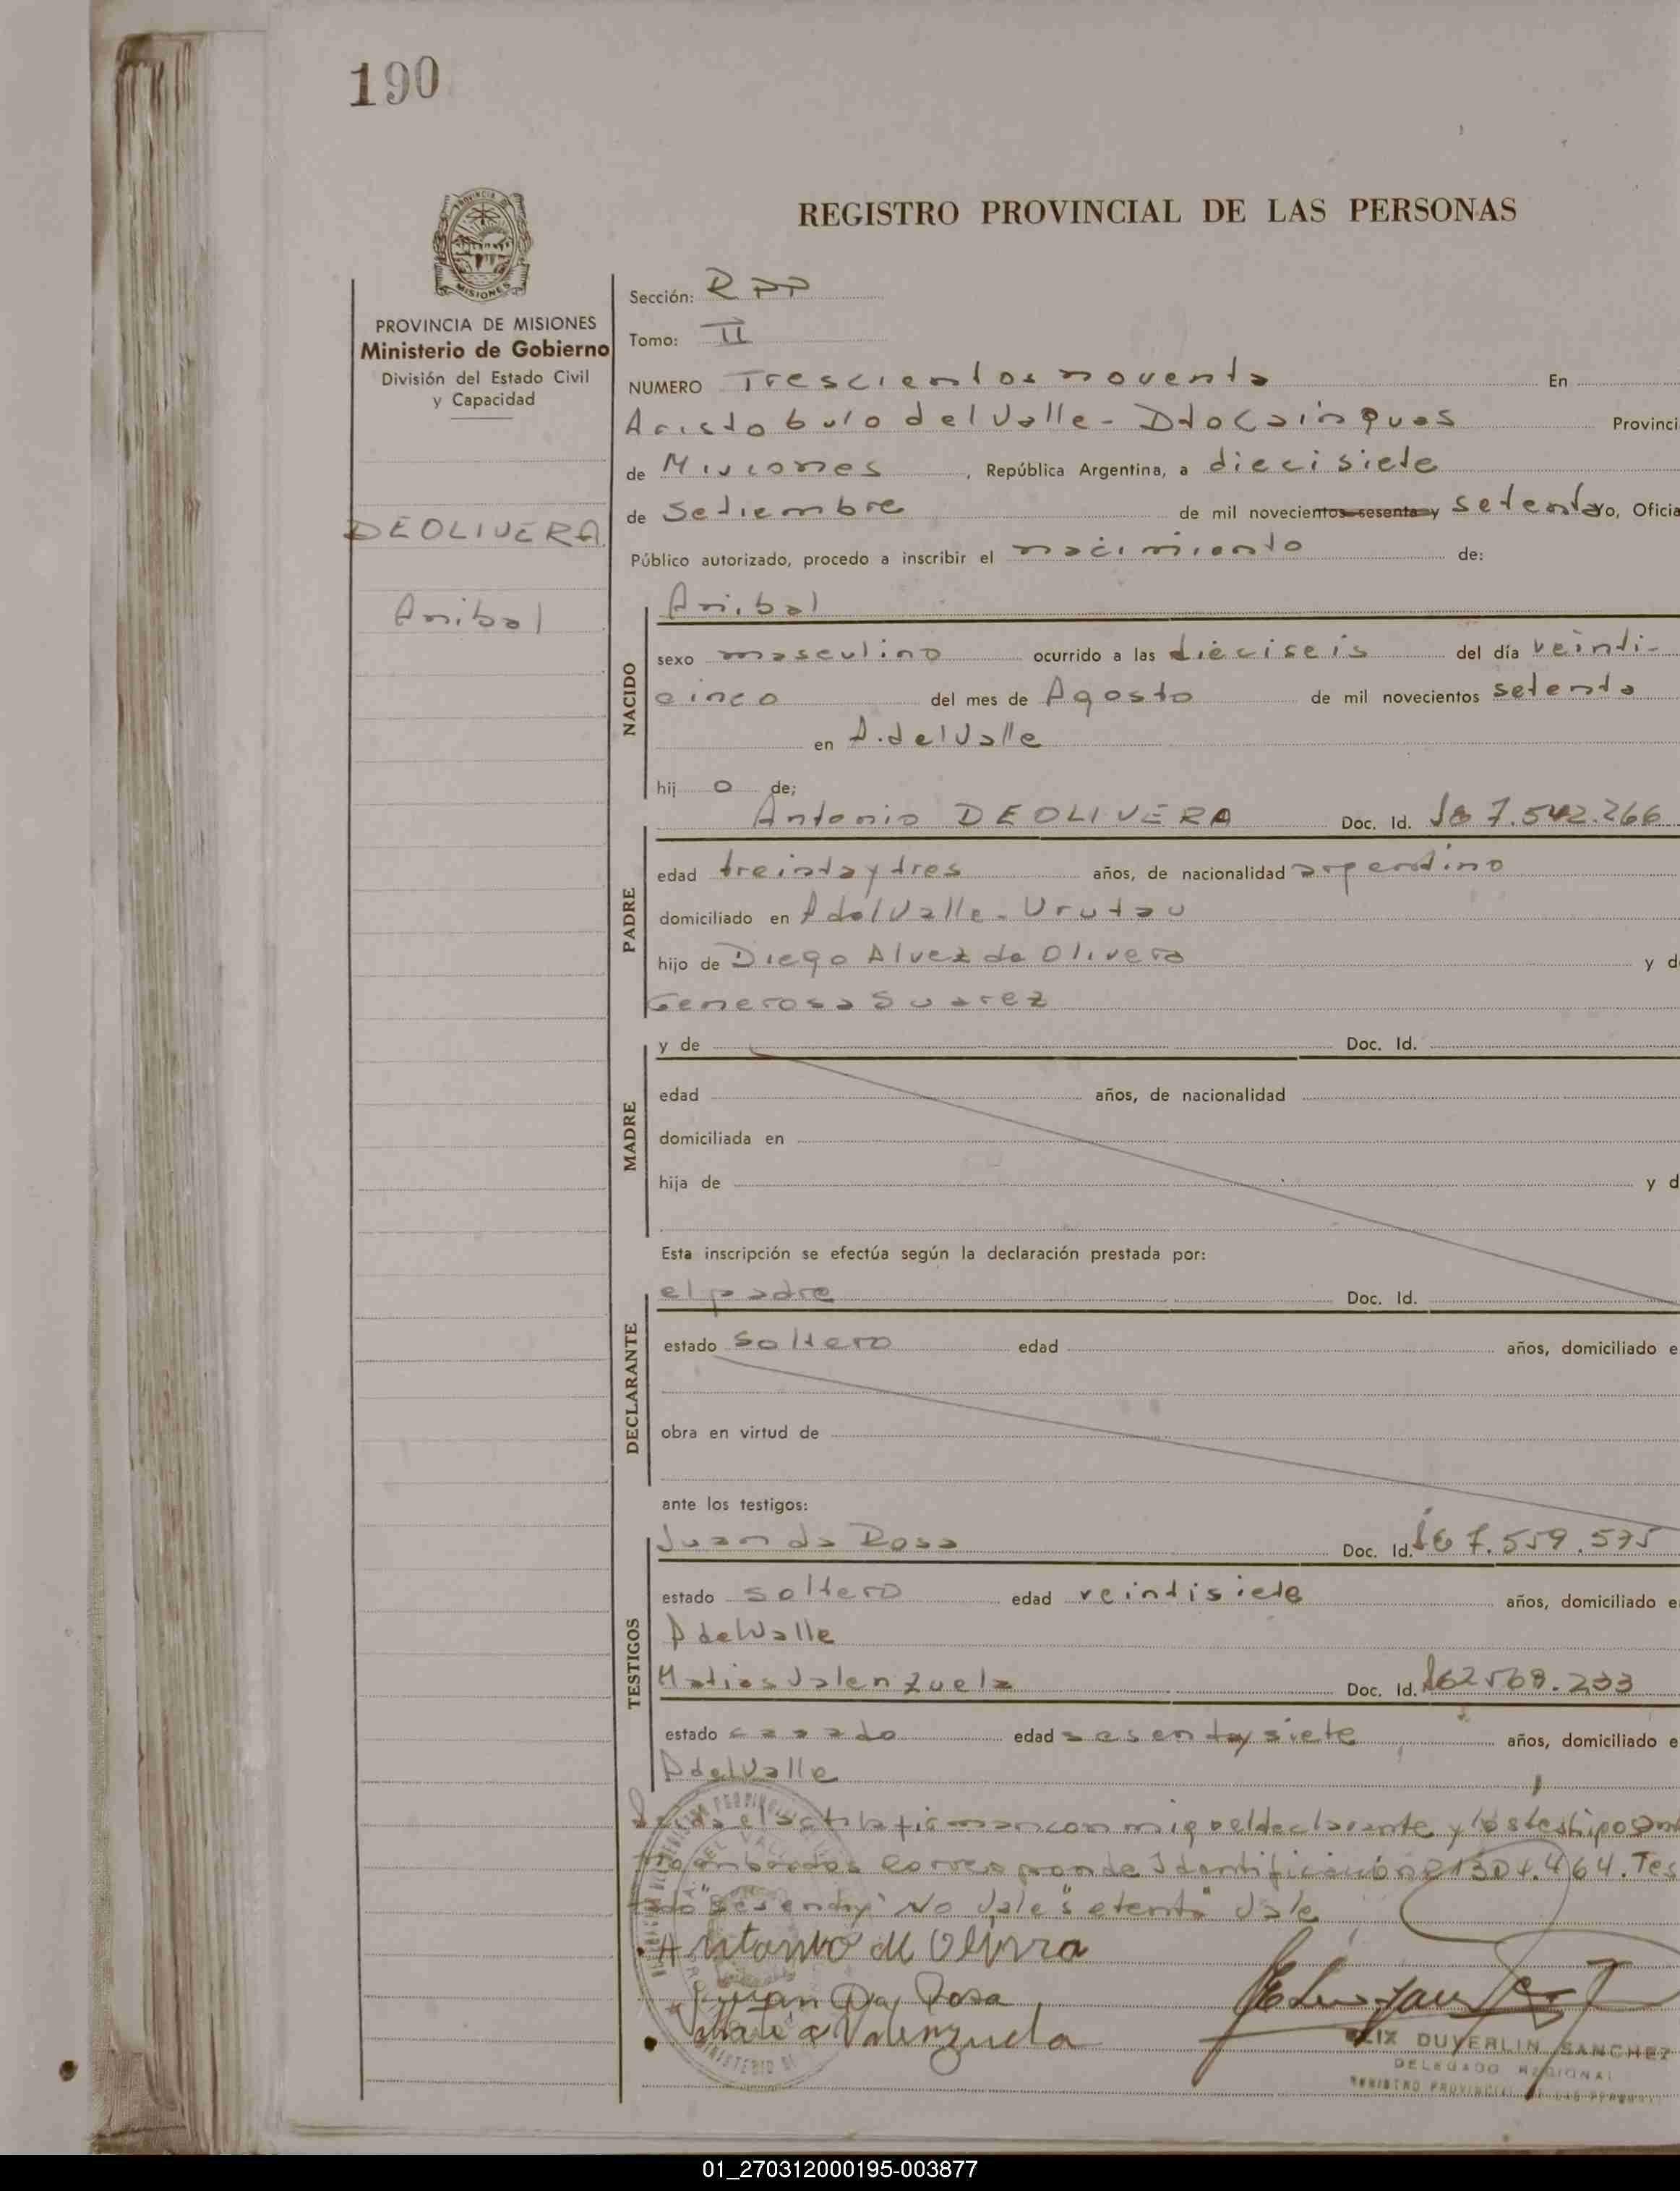 190
REGISTRO PROVINCIAL DE LAS PERSONAS
MISIONES
PROVINCIA DE MISIONES
Ministerio de Gobierno
División del Estado Civil
y Capacidad
DEOLIVERA
Anibal
Sección: RPP
Tomo: II
NUMERO Trescientos noventa En
Aristobulo del Valle - Dto Cainguas Provinci
de Misiones, República Argentina, a diecisiete
de Setiembre de mil novecientos sesenta y setenta yo, Oficia
Público autorizado, procedo a inscribir el nacimiento de:
NACIDO
Anibal
sexo masculino ocurrido a las dieciseis del día veinti-
cinco del mes de Agosto de mil novecientos setenta
en A. del Valle
hijo de;
PADRE
Antonio DEOLIVERA Doc. Id. 7.542.266
edad treinta y tres años, de nacionalidad argentino
domiciliado en A del Valle - Urutau
hijo de Diego Alvez de Olivera y d
Generosa Suarez
MADRE
y de Doc. Id.
edad años, de nacionalidad
domiciliada en
hija de y d
Esta inscripción se efectúa según la declaración prestada por:
DECLARANTE
el padre Doc. Id.
estado soltero edad años, domiciliado e
obra en virtud de
ante los testigos:
TESTIGOS
Juan da Rosa Doc. Id. 7.559.575
estado soltero edad veintisiete años, domiciliado e
A del Valle
Matias Valenzuela Doc. Id.
estado casado edad sesenta y siete años, domiciliado e
A del Valle
el acta la firman conmigo el declarante y los testigos
corresponde Identificación Tes
"sesenta y" No Vale "setenta" Vale
Antonio de Olivera
Juan Da Rosa
Valenzuela
DUVERLIN SANCHEZ
DELEGADO REGIONAL
REGISTRO PROVINCIAL DE LAS PERSONAS
01_270312000195-003877